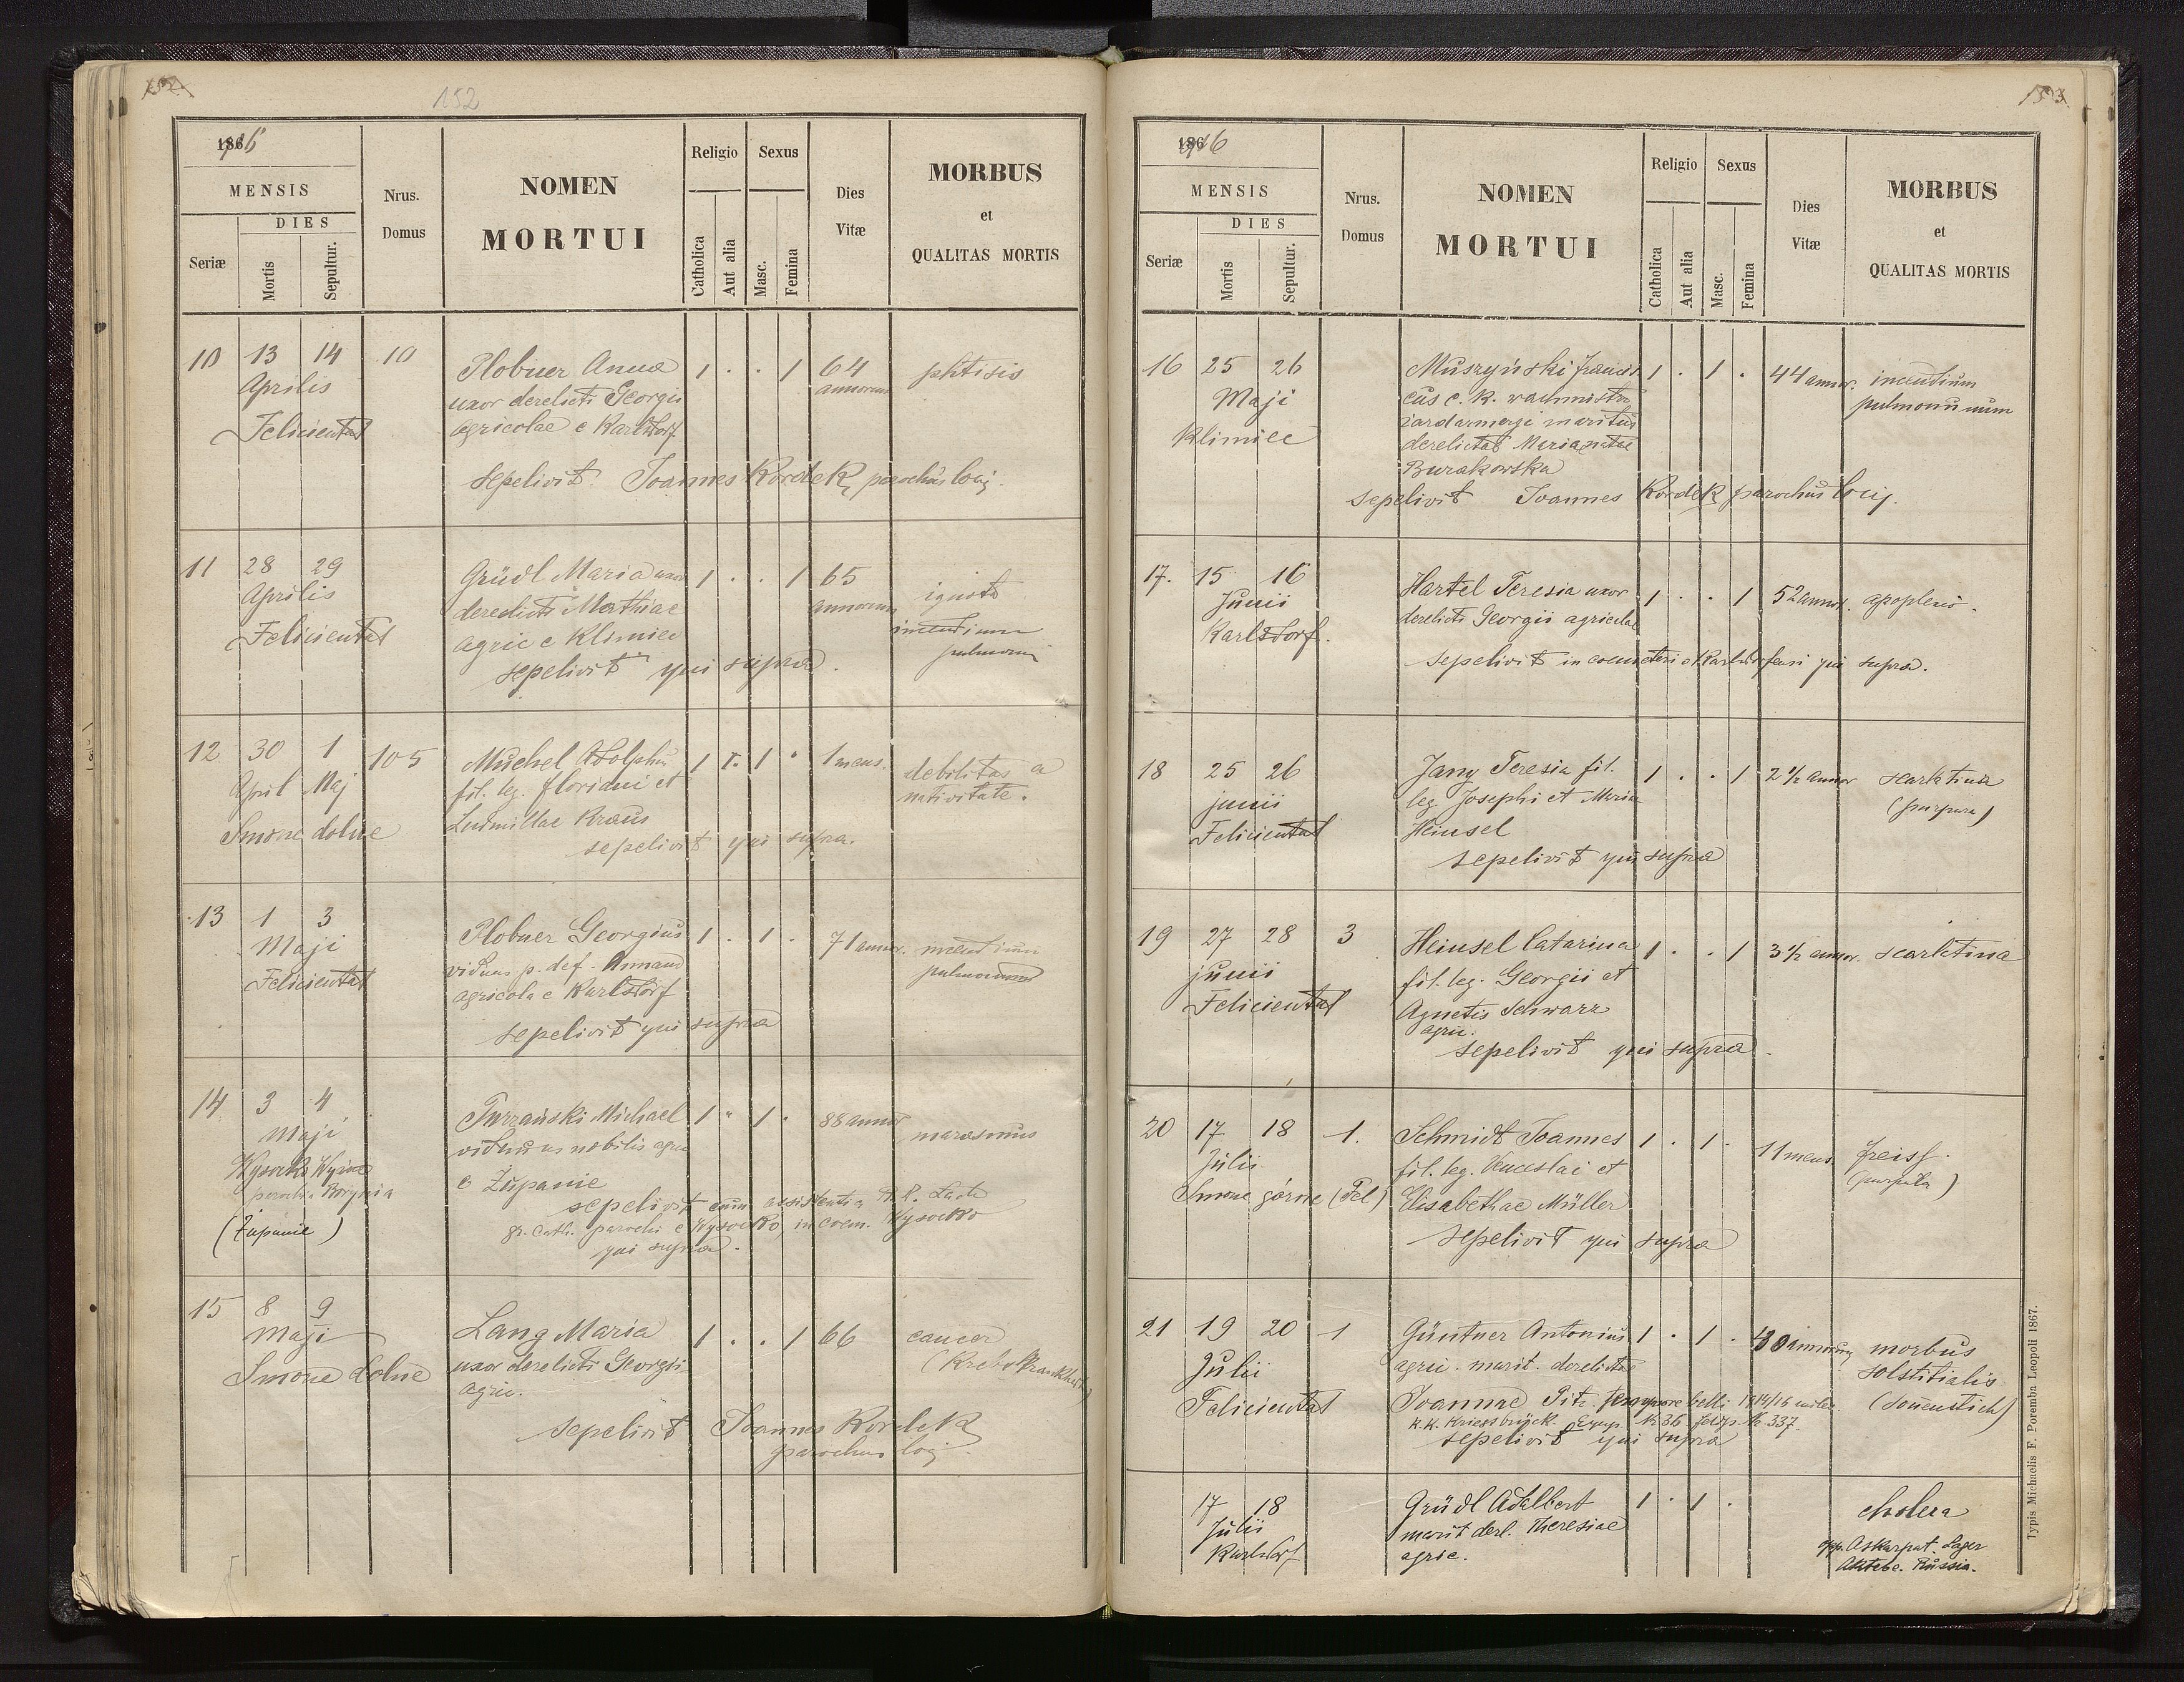 152
1916
MENSIS
DIES
Seriæ
Mortis
Sepultur.
Nrus.
Domus
NOMEN
MORTUI
Religio
Catholica
Aut alia
Sexus
Masc.
Femina
Dies
Vitæ
MORBUS
et
QUALITAS MORTIS
10 13 14 10 Plobner Anna 1 . . 1 64 phtisis
Aprilis uxor derelicti Georgii annorum
Felicienthal agricolae e Karlsdorf
sepelivit Joannes Kordek, parochus loci.
11 28 29 Grüdl Maria uxor 1 . . 1 65
Aprilis derelicti Mathiae annorum
Felicienthal agric e Klimiec incendium
sepelivit qui supra. pulmonu
12 30 1 105 Muchel Adolphu 1 . 1 . 1 mens. debilitas a
April Maj fil. leg. floriani et nativitate.
Smorze dolne Ludmillae Kraus
sepelivit qui supra.
13 1 3 Plobner Georgius 1 . 1 . 71 annor. incendium
Maji viduus p. def. Annam pulmonum
Felicienthal agricola e Karlsdorf
sepelivit qui supra
14 3 4 Turzański Michael 1 . 1 . 88 annor marasmus
Maji viduus nobilis agric
Wysocko Wyżne e Żupanie
parochia Borynia sepelivit cum assistentia
gr. cath. parochi e Wysocko in coem. Wysocko
(Żupanie) qui supra.
15 8 9 Lang Maria 1 . . 1 66 cancer
Maji uxor derelicti Georgii (Krebskrankheit)
Smorze dolne agric.
sepelivit Joannes Kordek
parochus loci
153
1916
MENSIS
DIES
Seriæ
Mortis
Sepultur.
Nrus.
Domus
NOMEN
MORTUI
Religio
Catholica
Aut alia
Sexus
Masc.
Femina
Dies
Vitæ
MORBUS
et
QUALITAS MORTIS
16 25 26 Muszyński francis 1 . 1 . 44 annor. incendium
Maji cus c. k. wachmistrz pulmonum
Klimiec żandarmerji maritus
derelictae Maria natae
Burakowska
sepelivit Joannes Kordek parochus locij.
17. 15 16 Hartel Teresia uxor 1 . . 1 52 annor. apoplexio.
Junii derelicti Georgii agricolae
Karlsdorf.
sepelivit in coemeterio Karlsdorfensi qui supra.
18 25 26 Jany Teresia fil. 1 . . 1 2 1/2 annor scarlatina
junii leg Josephi et Mariae (purpura)
Felicienthal Heinsel
sepelivit qui supra
19 27 28 3 Heinsel Catarina 1 . . 1 3 1/2 annor. scarlatina
junii fil. leg. Georgii et
Felicienthal Agnetis Schwarz
agric.
sepelivit qui supra.
20 17 18 1. Schmidt Joannes 1 . 1 . 11 mens.
Julii fil. leg. Venceslai et
Smorze górne (Fel) Elisabethae Müller
sepelivit qui supra
21 19 20 1 Güntner Antonius 1 . 1 . annorum morbus
Julii agric. marit. derelictae solstitialis
Felicienthal Joannae Pitz. tempore belli 1914/16 miles (Sonnenstich)
k.k. 36 feldp. N. 337.
sepelivit qui supra
17 18 Grüdl Adalbert 1 . 1 . cholera
Julii marit derl. Theresiae
Karlsdorf agric. Lager
Russia.
Typis Michaelis F. Poremba Leopoli 1867.